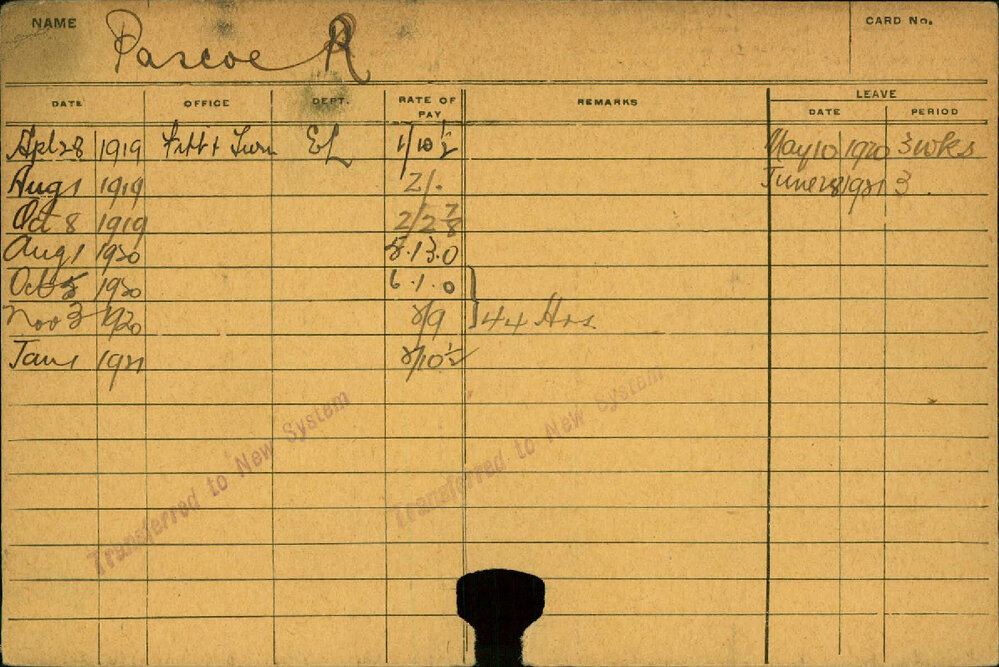 NAME Pascoe R CARD No.
DATE OFFICE DEPT. RATE OF PAY REMARKS LEAVE
DATE PERIOD
Apl 28 1919 Fitt & Turn EL 1/10½ May 10 1920 3 wks
Aug 1 1919 2/. June 28 1921 3
Oct 8 1919 2/2 7/8
Aug 1 1920 5.13.0
Oct 5 1920 6.1.0
Nov 3 1920 2/9 44 Hrs
Jan 1 1921 2/10½
Transferred to New System
Transferred to New System